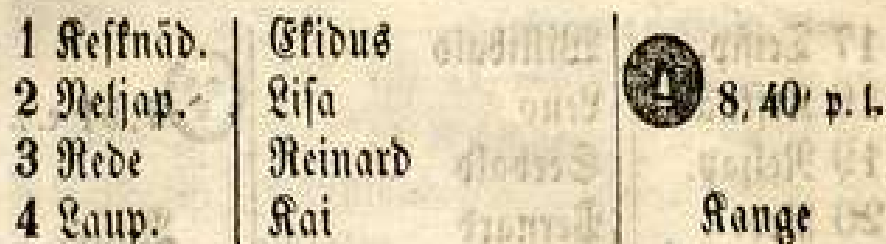 1 Kesknäd. Ekidus
2 Neljap. Lisa 8, 40' p. l.
3 Rede Reinard
4 Laup. Kai Kange